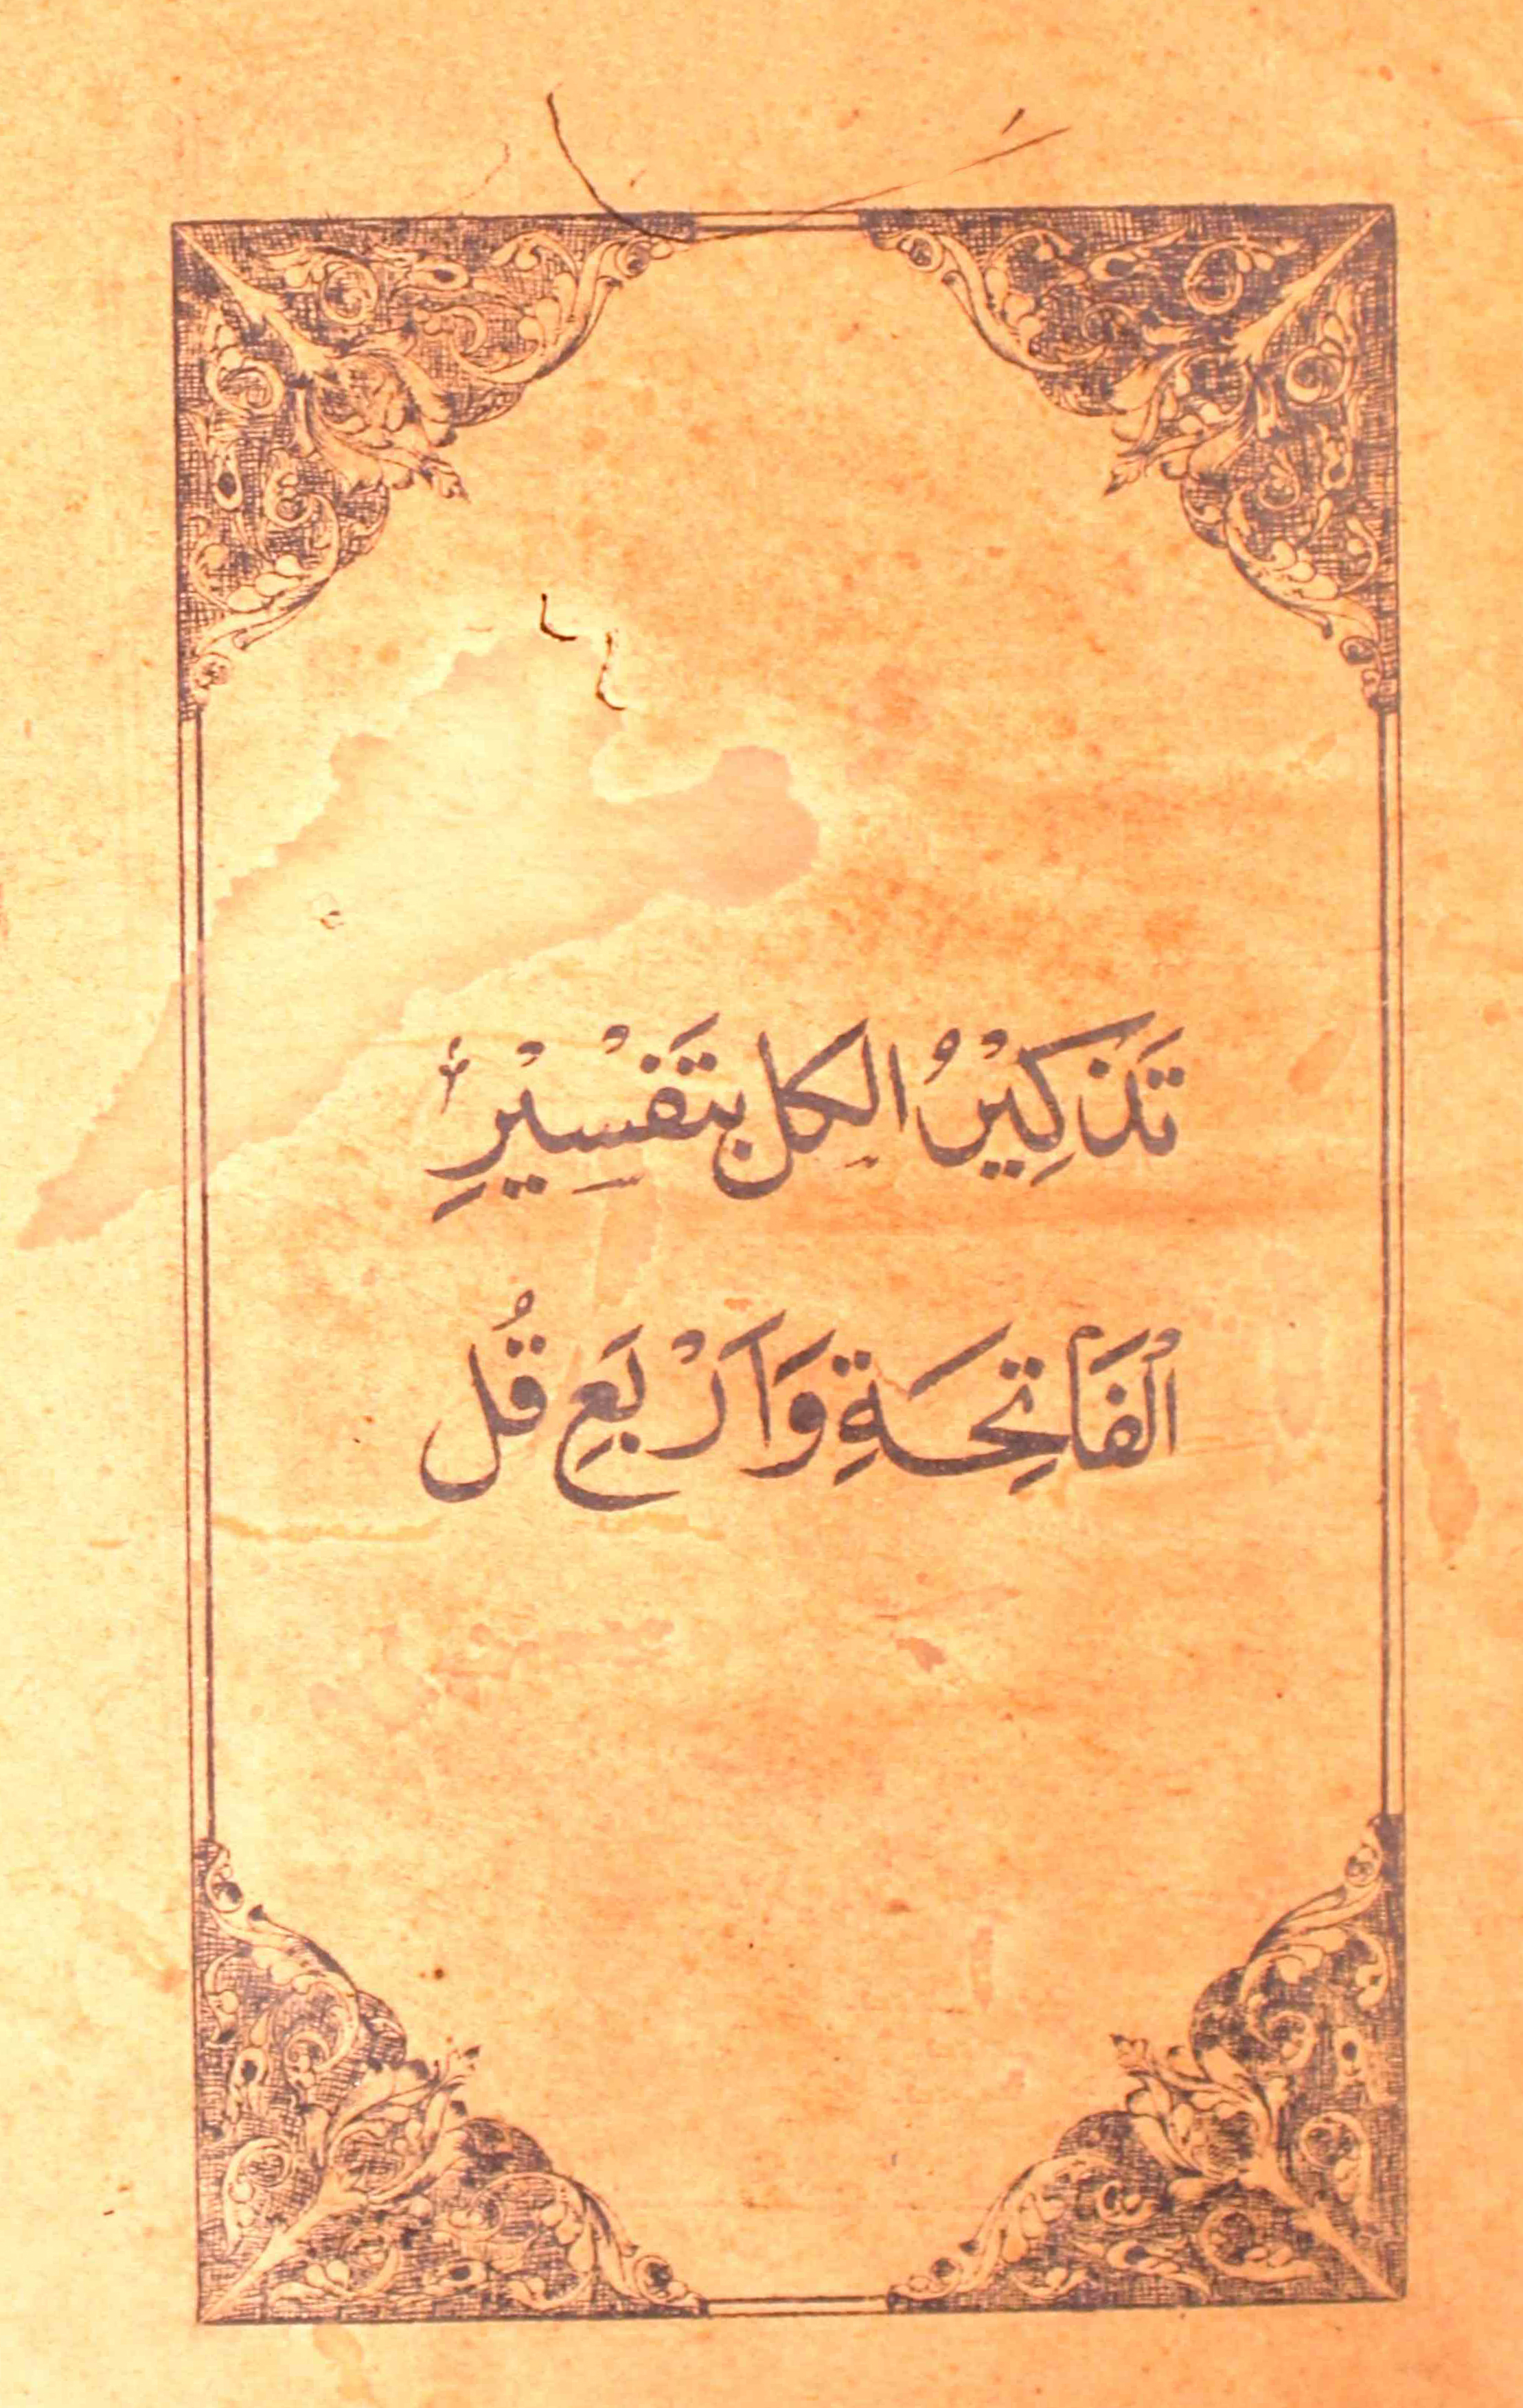 تَذكِيْرُ الكل بتَفْسِيْرِ
الْفَاتِحَةِ وَاَرْبَعِ قُل